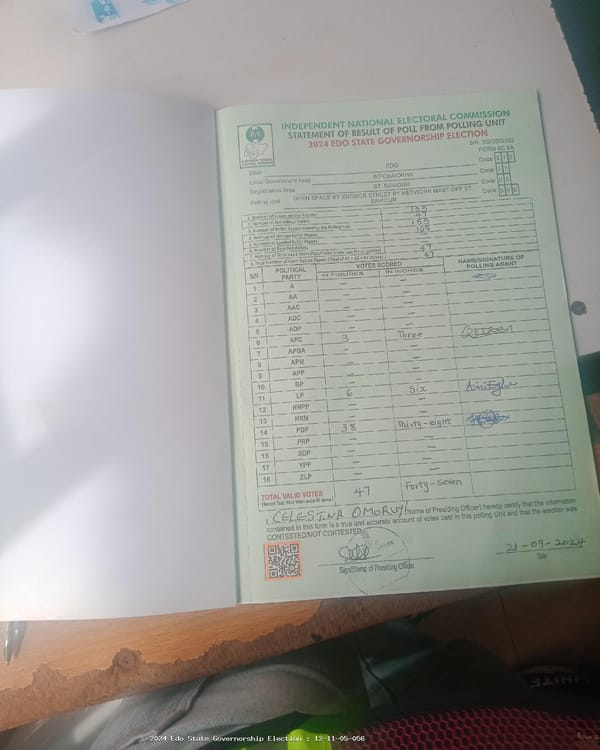 INDEPENDENT NATIONAL ELECTORAL COMMISSION
STATEMENT OF RESULT OF POLL FROM POLLING UNIT
2024 EDO STATE GOVERNORSHIP ELECTION
FORM EC 8A
State EDO Code
Local Government Area IKPOBA/OKHA Code
Registration Area ST. SAVIOUR Code
Polling Unit OPEN SPACE BY EDOSON STREET BY NETWORK MAST OFF ST. SAVIOUR Code
1. Number of Voters on the Register
2. Number of Accredited Voters 47
3. Number of Ballot Papers Issued to the Polling Unit
4. Number of Unused Ballot Papers
5. Number of Spoiled Ballot Papers
6. Number of Rejected Ballots
7. Number of Total Valid Votes 47
8. Total Number of Used Ballot Papers 47
S/N POLITICAL PARTY VOTES SCORED NAME/SIGNATURE OF POLLING AGENT
IN FIGURES IN WORDS
1 A — —
2 AA — —
3 AAC — —
4 ADC — —
5 ADP — —
6 APC 3 Three
7 APGA — —
8 APM — —
9 APP — —
10 BP — —
11 LP 6 Six
12 NNPP — —
13 NRM — —
14 PDP 38 Thirty-eight
15 PRP — —
16 SDP — —
17 YPP — —
18 ZLP — —
TOTAL VALID VOTES 47 Forty-Seven
I, CELESTINA OMORUYI (Name of Presiding Officer) hereby certify that the information
contained in this form is a true and accurate account of votes cast in this polling Unit and that the election was
CONTESTED/NOT CONTESTED
Sign/Stamp of Presiding Officer
21-09-2024
Date
2024 Edo State Governorship Election : 12-11-05-056